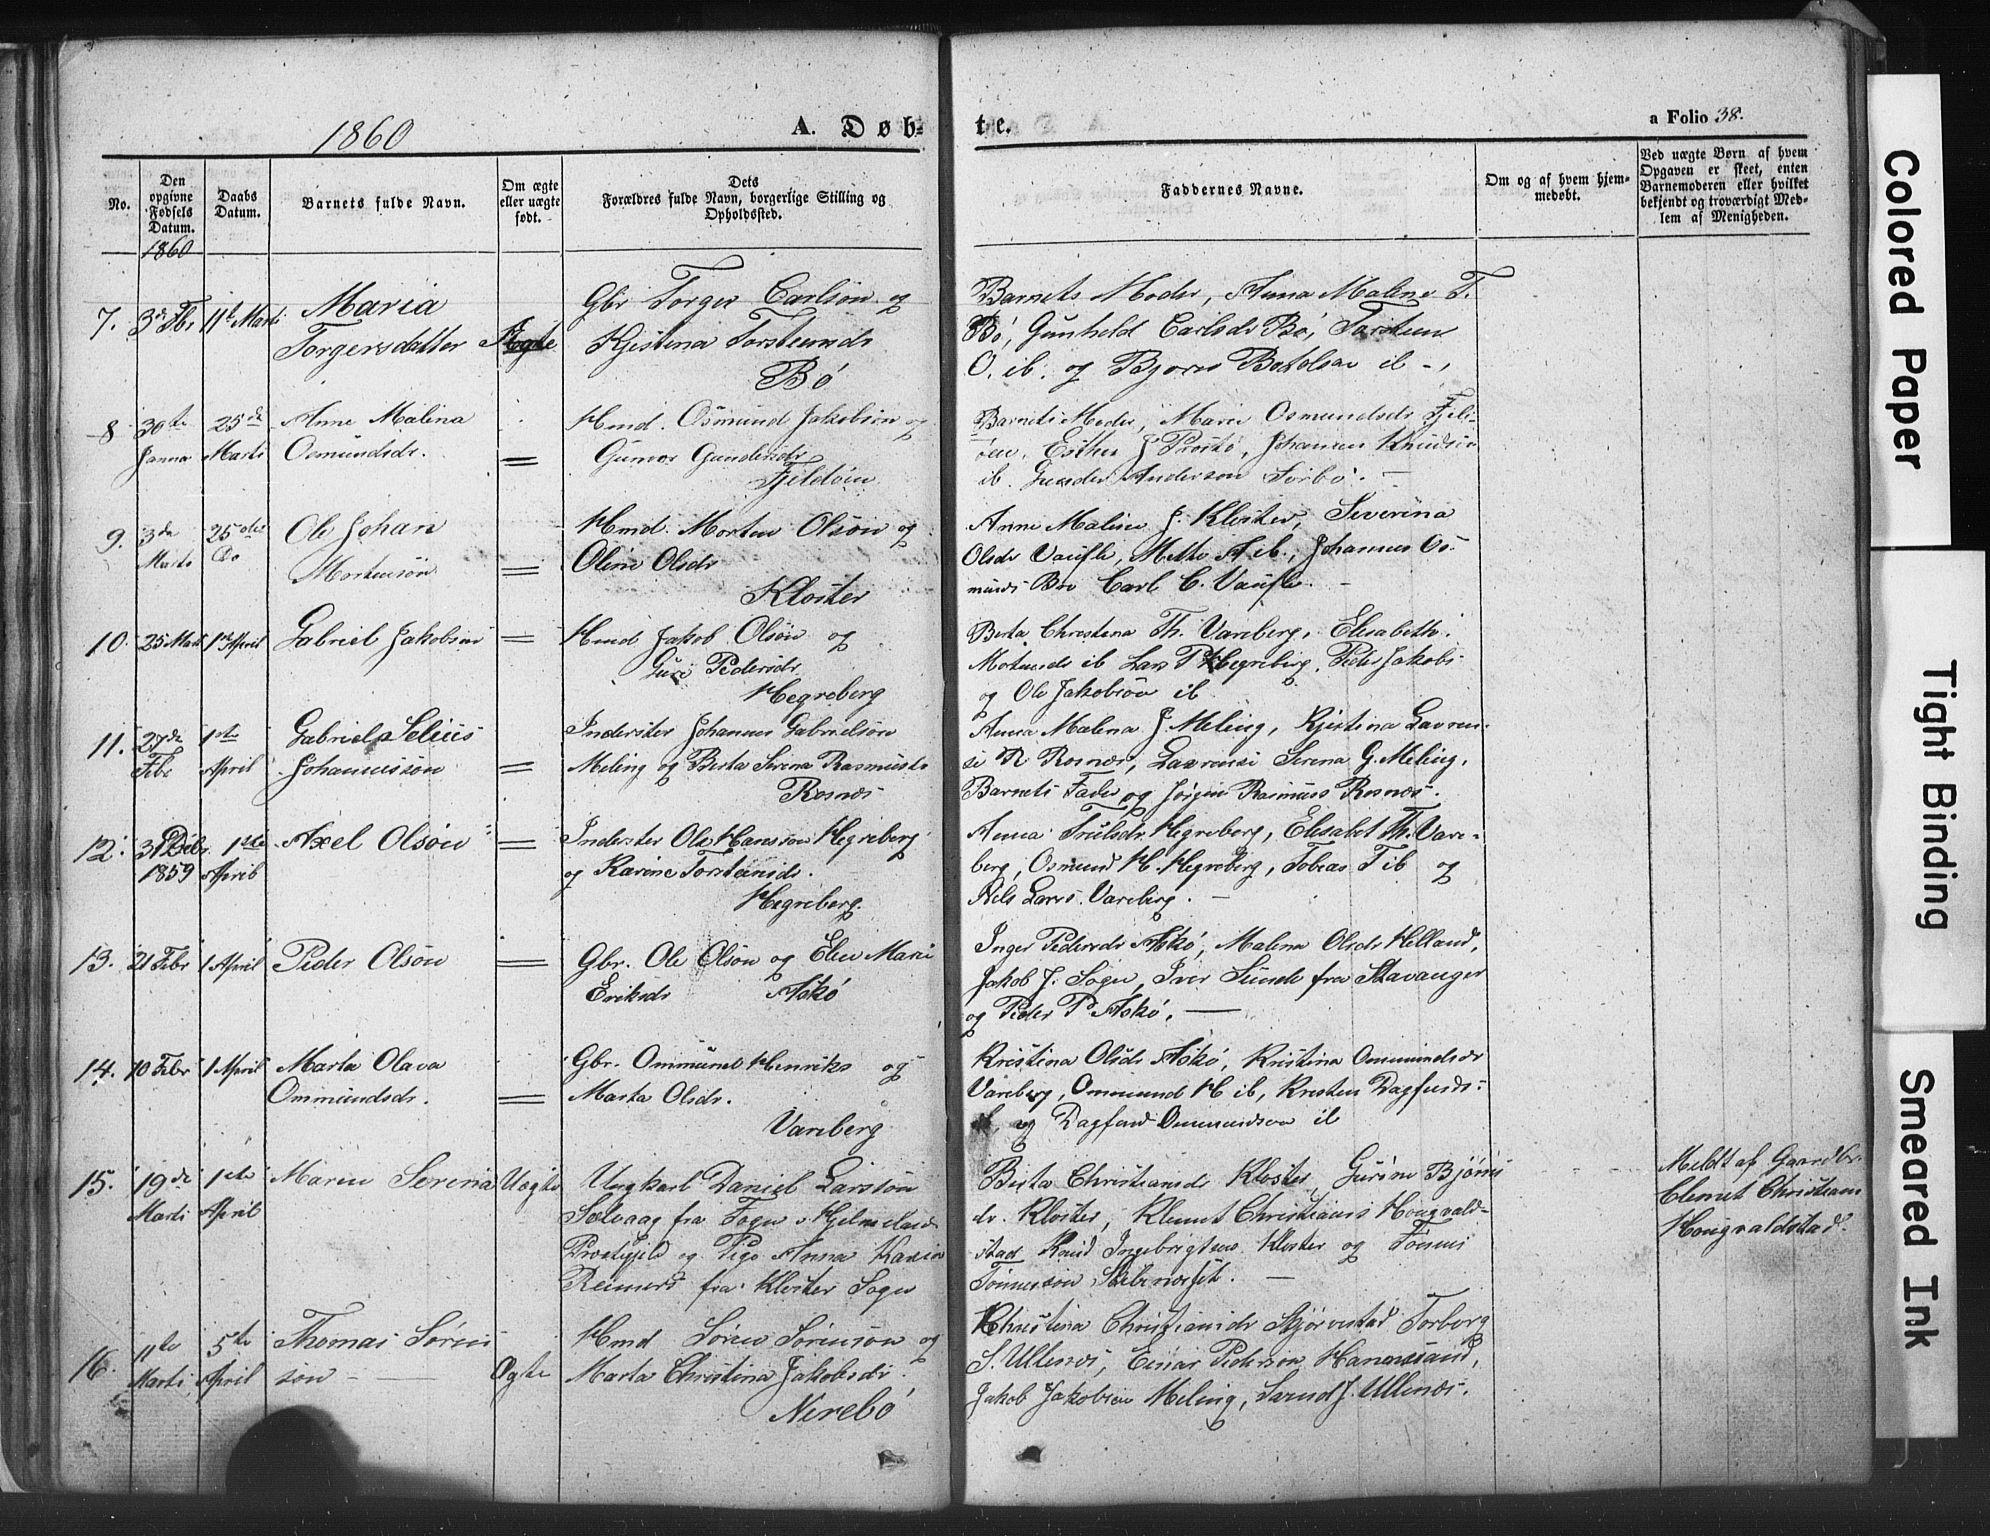 1860
A. Døb-
te.
a Folio 38.
No.
Den opgivne Fødsels Datum.
1860
Daabs Datum.
Barnets fulde Navn.
Om ægte eller uægte født.
Dets
Forældres fulde Navn, borgerlige Stilling og
Opholdssted.
Faddernes Navne.
Om og af hvem hjem-
medøbt.
Ved uægte Børn af hvem
Opgaven er skeet, enten
Barnemoderen eller hvilket
bekjendt og troværdigt Med-
lem af Menigheden.
7. 3de Fbr 11te Marti Maria
Torgersdatter Ægte
Gbr Torger Carlson og
Kjistina Torsteinsdr
Bö
Barnets Moder, Anna Malene T.
Bö, Gunheld Carlsdr Bö, Torsten
O. ib. og Bjorn Botolsen ib -,
8 30te Janna 25de Marti Anne Malina
Osmundsdr.
Hmd. Osmund Jakobson og
Gunvor Gundersdr
Fjeldöen
Barnets Moder, Maru Osmundsdr Fjel-
öen, Esther J Prostö, Johannes Knudsen
ib. Gunder Anderson Sörbö. -
9. 3de Marti 25de Do Ole Johan
Mortensön
Hmd. Morten Olsön og
Oline Olsdr
Kloster
Anne Maline J. Kloster, Severina
Olsdr Vaufle, Mette A ib., Johannes Os-
munds Bro Carl C. Vaufle. -
10. 25 Marti 1ste April Gabriel Jakobsen
Hmd Jakob Olsön og
Guri Pedersdr
Hegreberg
Berta Christena Th. Vareberg, Elisabeth
ib Lars P Hegreberg, Peder Jakobs
og Ole Jakobsön ib
11. 27de Febr 1ste April Gabriel Selius
Johannesson
Inderster Johannes Gabrielson
Meling og Berta Serena Rasmusdr
Rosnes
Anna Malena J. Meling, Kjistina Lauren-
si R Rosnes, Laurensi Serena G. Meling,
Barnets Fader og Jörgen Rasmuss Rosnæs.
12. 31 Debr. 1859 1ste April Axel Olsön
Inderster Ole Hanssön Hegreberg
og Karine Torsteinsdr.
Hegreberg.
Anna Trulsdr Hegreberg, Elisabet Th. Vare-
berg, Osmund H. Hegreberg, Tobias T ib og
Nels Lars. Vareberg. -
13. 21 Febr 1 April Peder Olsön
Gbr. Ole Olsön og Elen Marie
Eriksdr Askö
Inger Pedersdr Askö, Malena Olsdr Helland,
Jakob J. Sogn, Iver Sunde fra Stavanger
og Peder P Askö. —
14. 10 Febr 1 April Marta Olava
Ommundsdr.
Gbr. Ommund Henriks og
Marta Olsdr.
Vareberg
Kristina Olsdr Askö, Kristina Ommundsdr
Vareberg, Ommund H ib, Kresten Dagfinds-
og Dagfind Ommundson ib
15. 19de Marti 1ste April Maren Serena Uægte
Ungkarl Daniel Larssön
Solvaag fra Fogn Hjelmelands
Prestgjeld og Pige Anna Karin
Reimers fra Kloster Sogn
Berta Christiansdr Kloster, Gurine Bjöns
dr. Kloster, Klemet Christians Hougvald-
stad Knud Ingebrigtsen Kloster og Tönnes
Tönneson
Meldt af Gaardbr.
Clemet Christians
Hougvaldstad.
16. 11te Marti 5te April Thomas Sören
sön - — Ægte
Hmd Sören Sörenson og
Marta Christina Jakobsdr.
Nerebö
Christina Christiansdr Torborg
S. Ullenes, Einar Pederson
Jakob Jakobson Meling, J. Ullenes.
Colored Paper
Tight Binding
Smeared Ink